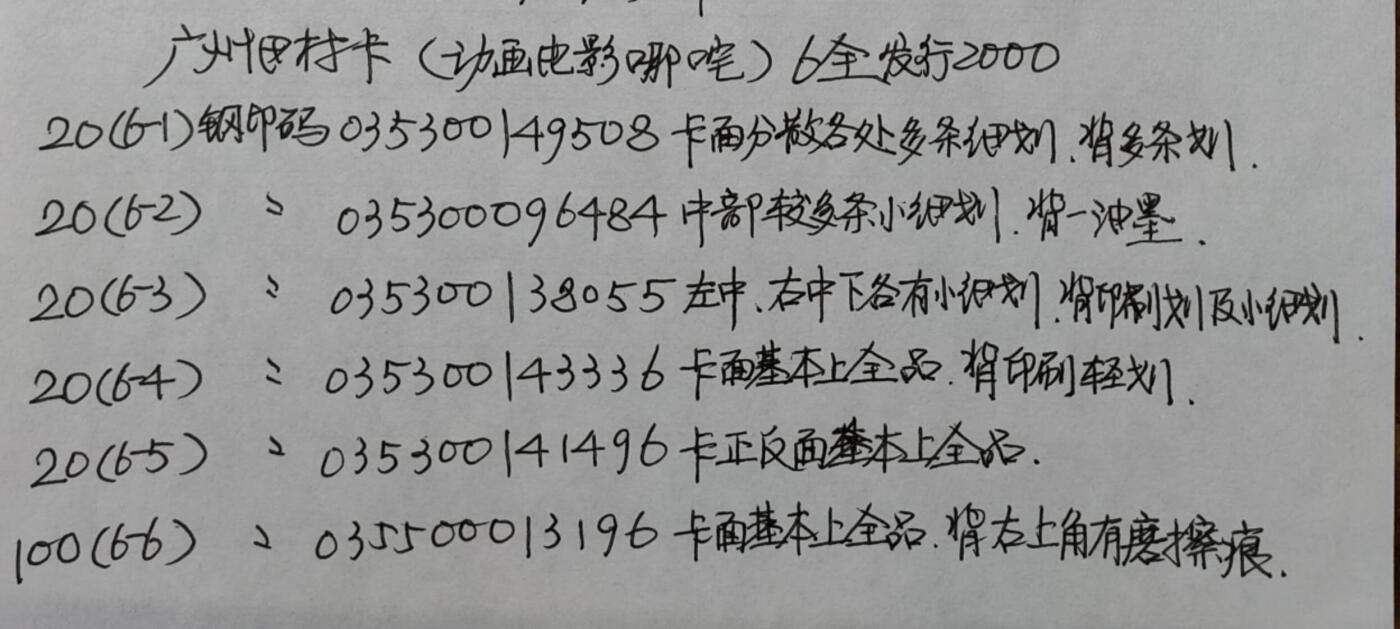 广州电话卡（动画电影哪咤）6全发行2000
20(6-1)钢印码035300149508卡面分散各处多条细划.背多条划.
20(6-2) 〃 035300096484中部较多条小细划.背一油墨.
20(6-3) 〃 035300138055左中、右中下各有小细划.背印刷划及小细划.
20(6-4) 〃 035300143336卡面基本上全品.背印刷轻划.
20(6-5) 〃 035300141496卡正反面基本上全品.
100(6-6) 〃 035500013196卡面基本上全品.背右上角有磨擦痕.